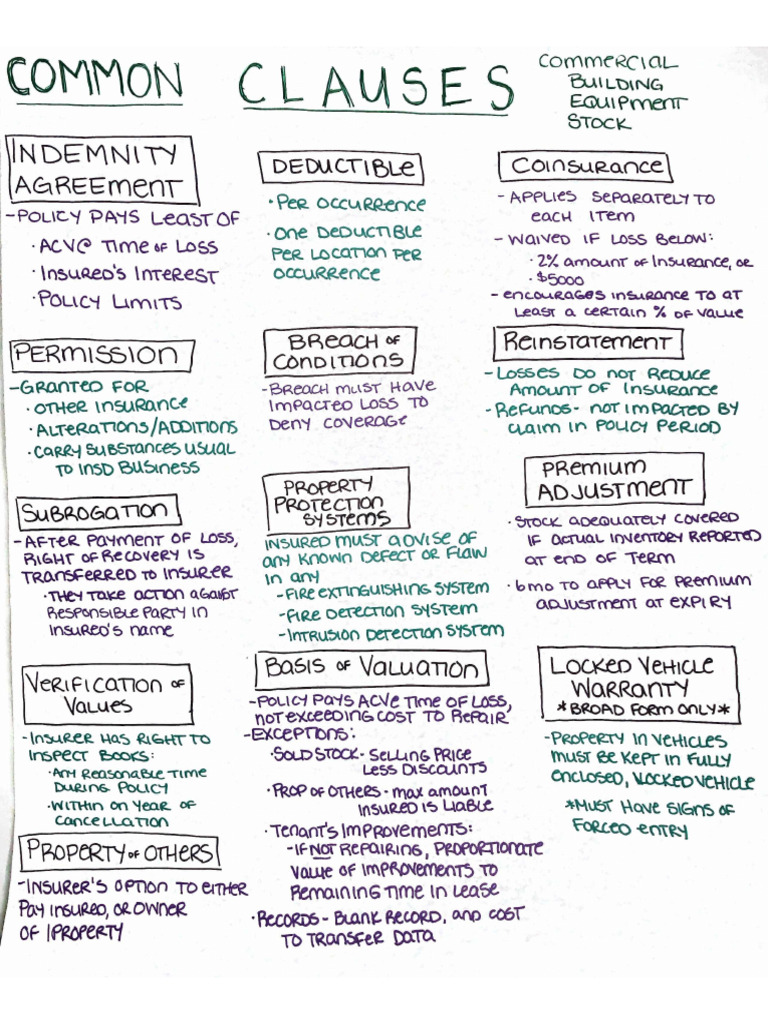 COMMON CLAUSES
COMMERCIAL
BUILDING
EQUIPMENT
STOCK
INDEMNITY
AGREEMENT
-POLICY PAYS LEAST OF
·ACV@ TIME OF LOSS
·INSURED'S INTEREST
·POLICY LIMITS
DEDUCTIBLE
·PER OCCURRENCE
·ONE DEDUCTIBLE
PER LOCATION PER
OCCURRENCE
COINSURANCE
-APPLIES SEPARATELY TO
EACH ITEM
-WAIVED IF LOSS BELOW:
·2% AMOUNT OF INSURANCE, OR
·$5000
-ENCOURAGES INSURANCE TO AT
LEAST A CERTAIN % OF VALUE
PERMISSION
-GRANTED FOR
·OTHER INSURANCE
·ALTERATIONS/ADDITIONS
·CARRY SUBSTANCES USUAL
TO INSD BUSINESS
BREACH OF
CONDITIONS
-BREACH MUST HAVE
IMPACTED LOSS TO
DENY COVERAGE
REINSTATEMENT
-LOSSES DO NOT REDUCE
AMOUNT OF INSURANCE
-REFUNDS- NOT IMPACTED BY
CLAIM IN POLICY PERIOD
SUBROGATION
-AFTER PAYMENT OF LOSS,
RIGHT OF RECOVERY IS
TRANSFERRED TO INSURER
·THEY TAKE ACTION AGAINST
RESPONSIBLE PARTY IN
INSURED'S NAME
PROPERTY
PROTECTION
SYSTEMS
INSURED MUST ADVISE OF
ANY KNOWN DEFECT OR FLAW
IN ANY
-FIRE EXTINGUISHING SYSTEM
-FIRE DETECTION SYSTEM
-INTRUSION DETECTION SYSTEM
PREMIUM
ADJUSTMENT
·STOCK ADEQUATELY COVERED
IF ACTUAL INVENTORY REPORTED
AT END OF TERM
·6MO TO APPLY FOR PREMIUM
ADJUSTMENT AT EXPIRY
VERIFICATION OF
VALUES
-INSURER HAS RIGHT TO
INSPECT BOOKS:
·ANY REASONABLE TIME
DURING POLICY
·WITHIN ON YEAR OF
CANCELLATION
BASIS OF VALUATION
-POLICY PAYS ACV@ TIME OF LOSS,
NOT EXCEEDING COST TO REPAIR
-EXCEPTIONS:
·SOLD STOCK- SELLING PRICE
LESS DISCOUNTS
·PROP OF OTHERS - MAX AMOUNT
INSURED IS LIABLE
·TENANT'S IMPROVEMENTS:
-IF NOT REPAIRING, PROPORTIONATE
VALUE OF IMPROVEMENTS TO
REMAINING TIME IN LEASE
·RECORDS - BLANK RECORD, AND COST
TO TRANSFER DATA
LOCKED VEHICLE
WARRANTY
*BROAD FORM ONLY*
-PROPERTY IN VEHICLES
MUST BE KEPT IN FULLY
ENCLOSED, LOCKED VEHICLE
*MUST HAVE SIGNS OF
FORCED ENTRY
PROPERTY OF OTHERS
-INSURER'S OPTION TO EITHER
PAY INSURED, OR OWNER
OF PROPERTY